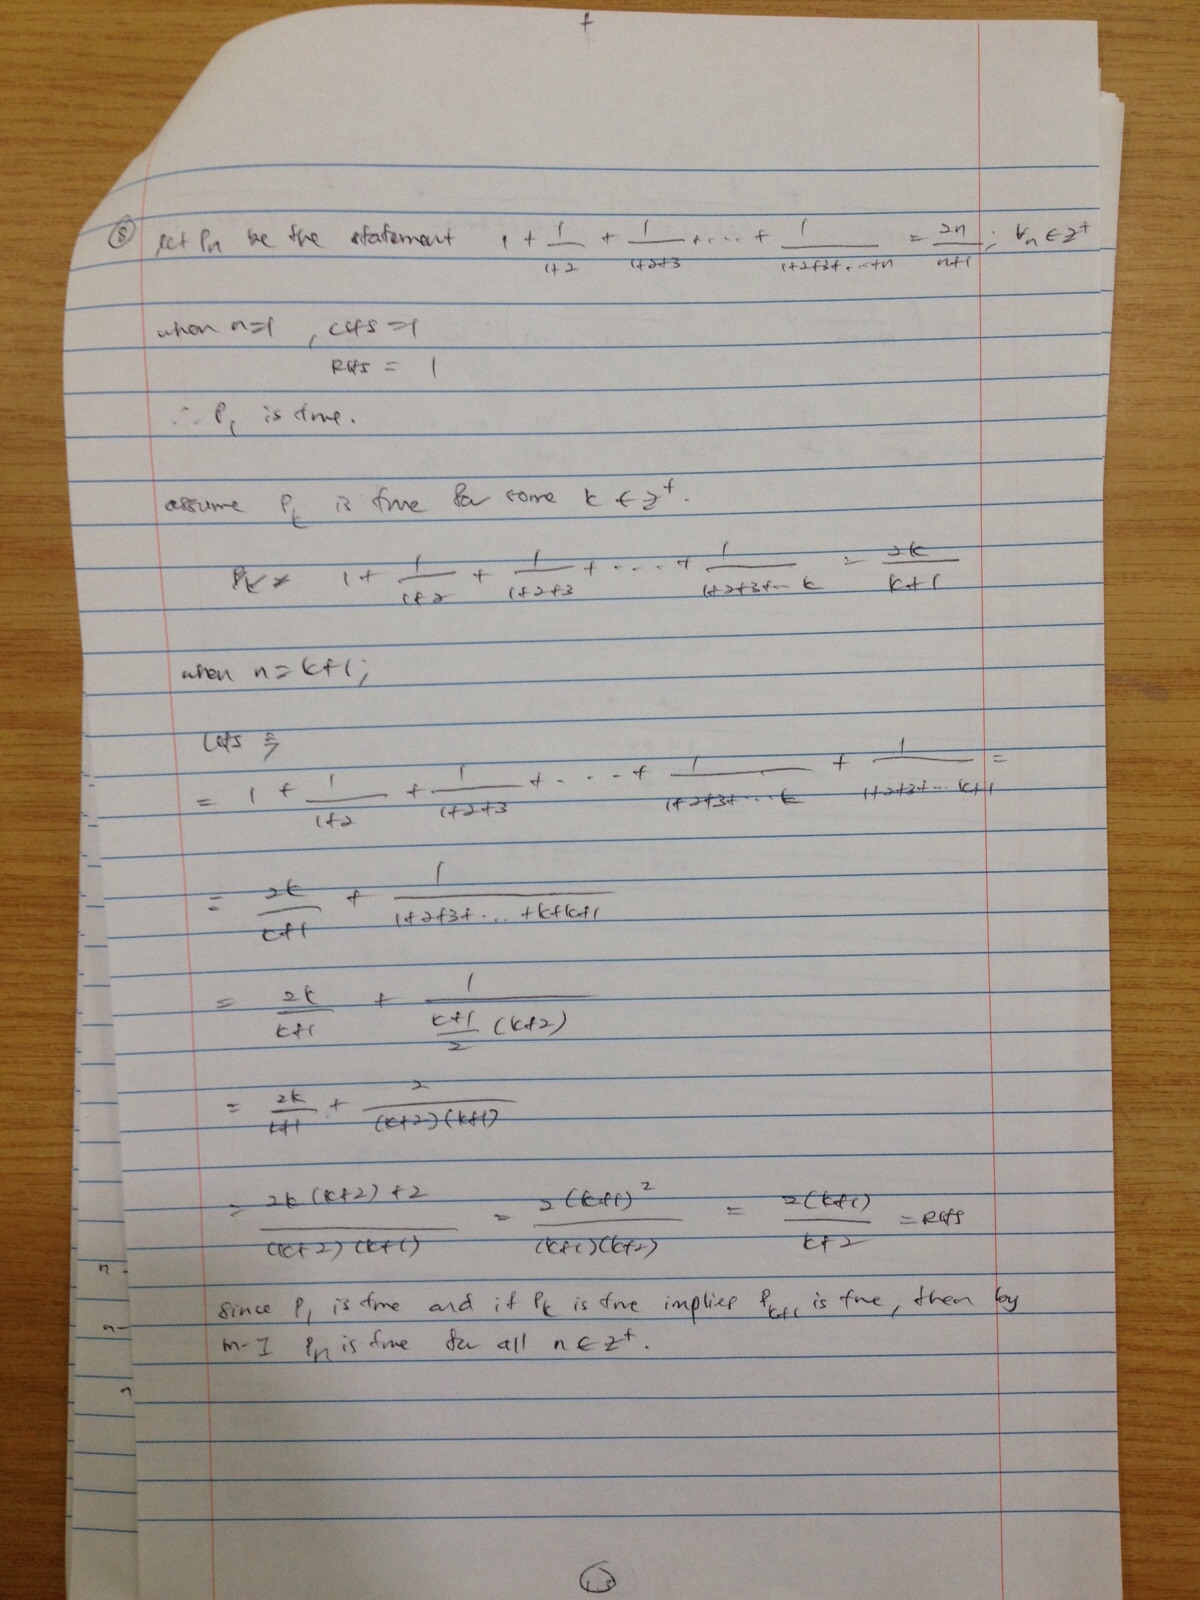 +
⑧ let Pn be the statement 1 + 1/(1+2) + 1/(1+2+3) + .... + 1/(1+2+3+...+n) = 2n/(n+1), ∀n ∈ Z⁺
when n=1, LHS = 1
RHS = 1
∴ P₁ is true.
assume Pk is true for some k ∈ Z⁺.
Pk 1 + 1/(1+2) + 1/(1+2+3) + .... + 1/(1+2+3+... k) = 2k/(k+1)
when n = k+1;
LHS
= 1 + 1/(1+2) + 1/(1+2+3) + .... + 1/(1+2+3+... k) + 1/(1+2+3+... k+1) =
= 2k/(k+1) + 1/(1+2+3+... +k+k+1)
= 2k/(k+1) + 1/((k+1)/2 (k+2))
= 2k/(k+1) + 2/((k+2)(k+1))
= (2k(k+2)+2)/((k+2)(k+1)) = 2(k+1)²/((k+1)(k+2)) = 2(k+1)/(k+2) = RHS
since P₁ is true and if Pk is true implies Pk+1 is true, then by
m-I Pn is true for all n ∈ Z⁺.
n
n
n
13